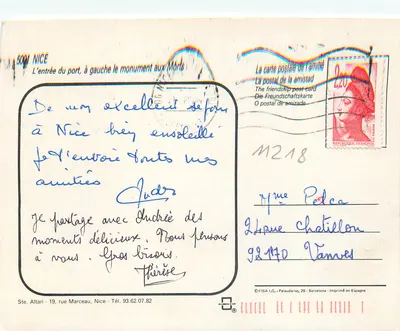 5001 NICE
L'entrée du port, à gauche le monument aux Morts
De mon excellent séjour
à Nice bien ensoleillé
je t'envoie toutes mes
amitiés
Je partage avec Andrée des
moments délicieux. Nous pensons
à vous. Gros bisous.
Thérèse
Ste. Altari - 19, rue Marceau, Nice - Tél. 93.62.07.82
La carte postale de l'amitié
La postal de la amistad
The friendship post card
Die Freundschaftskarte
O postal da amizade
0,20
11218
Mme Polca
24 rue Chatillon
92170 Vanves